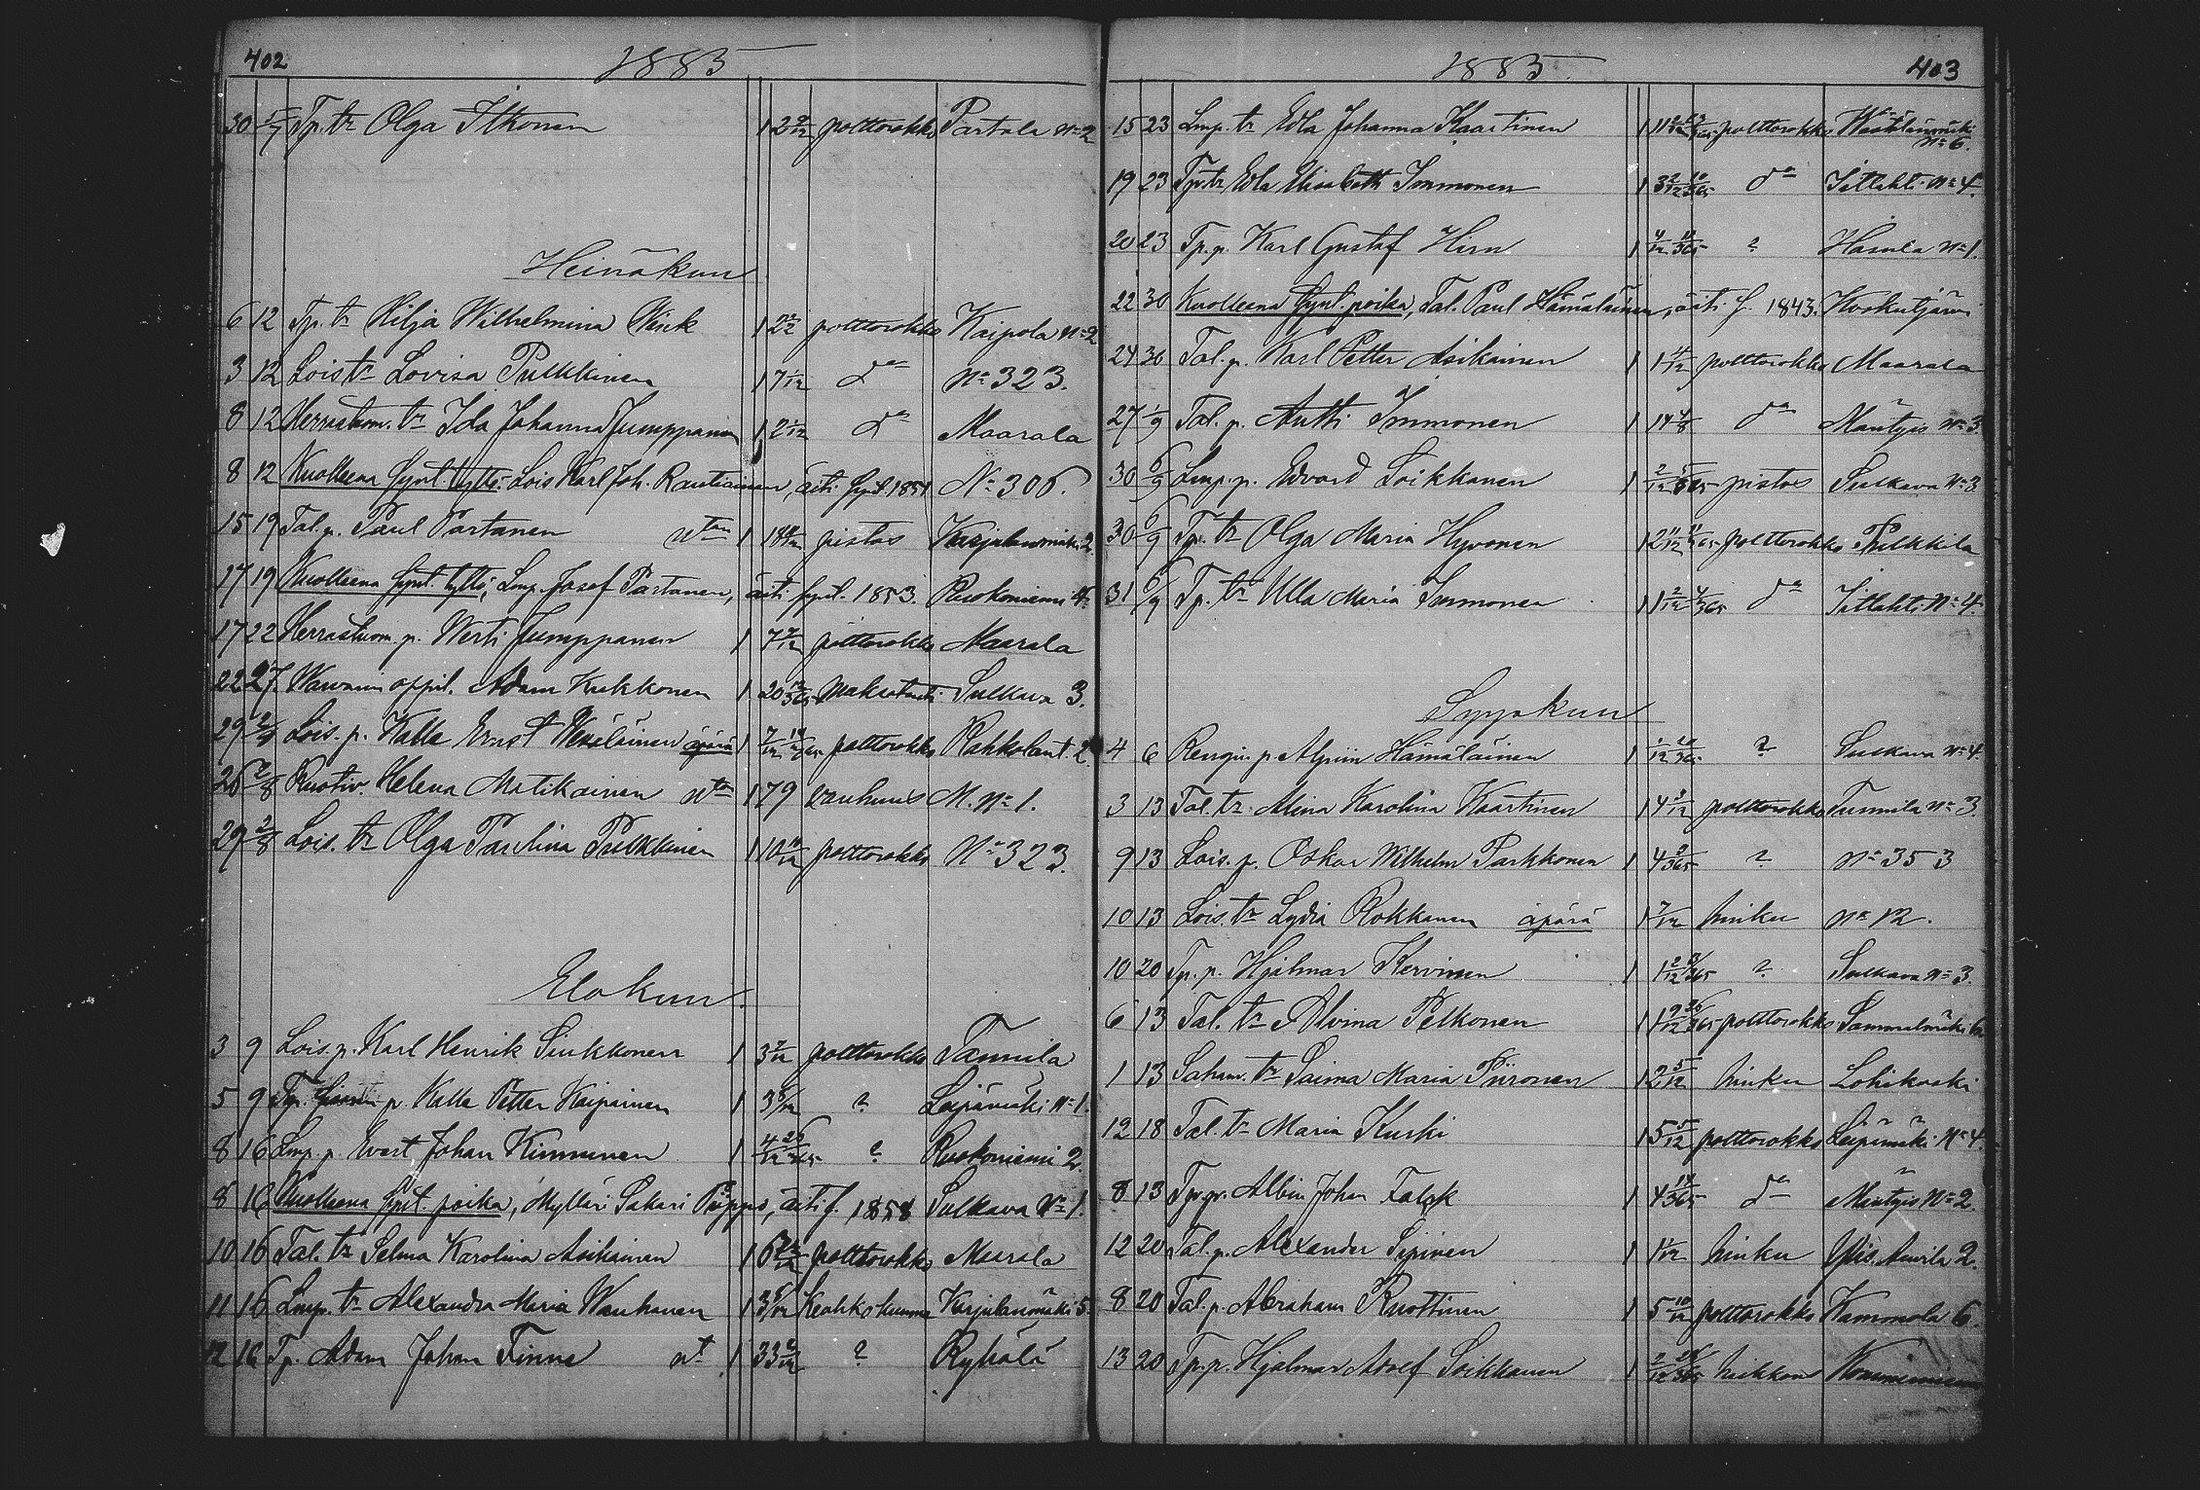 402
1883
30 5/7 Tp. tr Olga Itkonen 1 2 2/12 polttorokko Partala No 2
Heinäkuu
6 12 Tp. tr Hilja Wilhelmina Wink 1 polttorokko Kaipola No 2
3 12 Lois tr Lovisa Pulkkinen 1 7 1/12 do No 323.
8 12 Herrastuom. tr Ida Johanna Jumppanen 1 2 1/12 do Maarala
8 12 Kuolleena synt. tyttö. Lois Karl Joh. Rautiainen, äiti synt. 1851 No 306.
15 19 Tal. p. Paul Partanen ntön 1 pistos Karjulanmäki 2
17 19 Kuolleena synt. tyttö, Lmp. Josef Partanen, äiti synt. 1853. Ruokoniemi 4.
17 22 Herrastuom. p. Werti Jumppanen 1 7 7/12 polttorokko Maarala
22 27 Warvarin oppil. Adam Kukkonen 1 20 maksatauti Sulkava 3.
29 2/8 Lois. p. Kalle Ernst Wesäläinen äpärä 1 polttorokko Rahkolant. 2.
26 2/8 Ruotiv. Helena Matikainen ntön 1 79 vanhuus M. No 1.
29 2/8 Lois. tr Olga Paulina Pulkkinen 1 10 polttorokko No 323.
Elokuu.
3 9 Lois. p. Karl Henrik Sinkkonen 1 3 7/12 polttorokko Tannila
5 9 Tp. p. Kalle Petter Kaipainen 1 3 5/12 ? Leipämäki No 1.
8 16 Lmp. p. Evert Johan Kinnunen 1 4/12 29/365 ? Ruokoniemi 2.
8 16 Kuolleena synt. poika, Mylläri Sakari Piippo, äiti f. 1858 Sulkava No 1.
10 16 Tal. tr Selma Karolina Asikainen 1 6 polttorokko Maarala
11 16 Lmp. tr Alexandra Maria Wauhonen 1 Keuhkokuume Karjulanmäki 5.
12 16 Tp. Adam Johan Finne nt 1 33 ? Ryhälä
1883.
403
15 23 Lmp. tr Edla Johanna Kaartinen 1 polttorokko
No 6.
19 23 Tp. tr Edla Elisabeth Immonen 1 3 2/12 10/365 do Iitlahti No 4.
20 23 Tp. p. Karl Gustaf Hirn 1 ? Hasula No 1.
22 30 Kuolleena synt. poika, Tal. Paul Hämäläinen, äiti f. 1843. Kuokutjärvi
24 30 Tal. p. Karl Petter Asikainen 1 polttorokko Maarala
27 1/9 Tal. p. Antti Immonen 1 do Mäntyis No 3.
30 6/9 Lmp. p. Edvard Loikkanen 1 2/12 5/365 pistos Sulkava No 3
30 6/9 Tp. tr Olga Maria Hyvonen 1 polttorokko Pulkkila
31 6/9 Tp. tr Ulla Maria Immonen 1 1 2/12 4/365 do Iitlahti No 4.
Syyskuu
4 6 Rengin p. Alpiin Hämäläinen 1 ? Sulkava No 4.
3 13 Tal. tr Alina Karolina Kaartinen 1 4 3/12 polttorokko Tunnila No 3.
9 13 Lois. p. Oskar Wilhelm Parkkonen 1 ? No 353
10 13 Lois. tr Lydia Rokkanen äpärä 1 7/12 hinku No 12.
10 20 Tp. p. Hjalmar Kervinen 1 ? Sulkava No 3.
6 13 Tal. tr Alvina Pelkonen 1 1 9/12 26/365 polttorokko Sammalmäki 6
1 13 Saham. tr Saima Maria Piironen 1 2 5/12 hinku Lohikoski
12 18 Tal. tr Maria Kuski 1 5 5/12 polttorokko Leipämäki No 4.
8 13 Tp. p. Albin Johan Falck 1 do Mäntyis No 2.
12 20 Tal. p. Alexander Sipinen 1 1 1/12 hinku Auvila 2.
8 20 Tal. p. Abraham Ruottinen 1 5 10/12 polttorokko Kammola 6.
13 20 Tp. p. Hjalmar Adolf Loikkanen 1